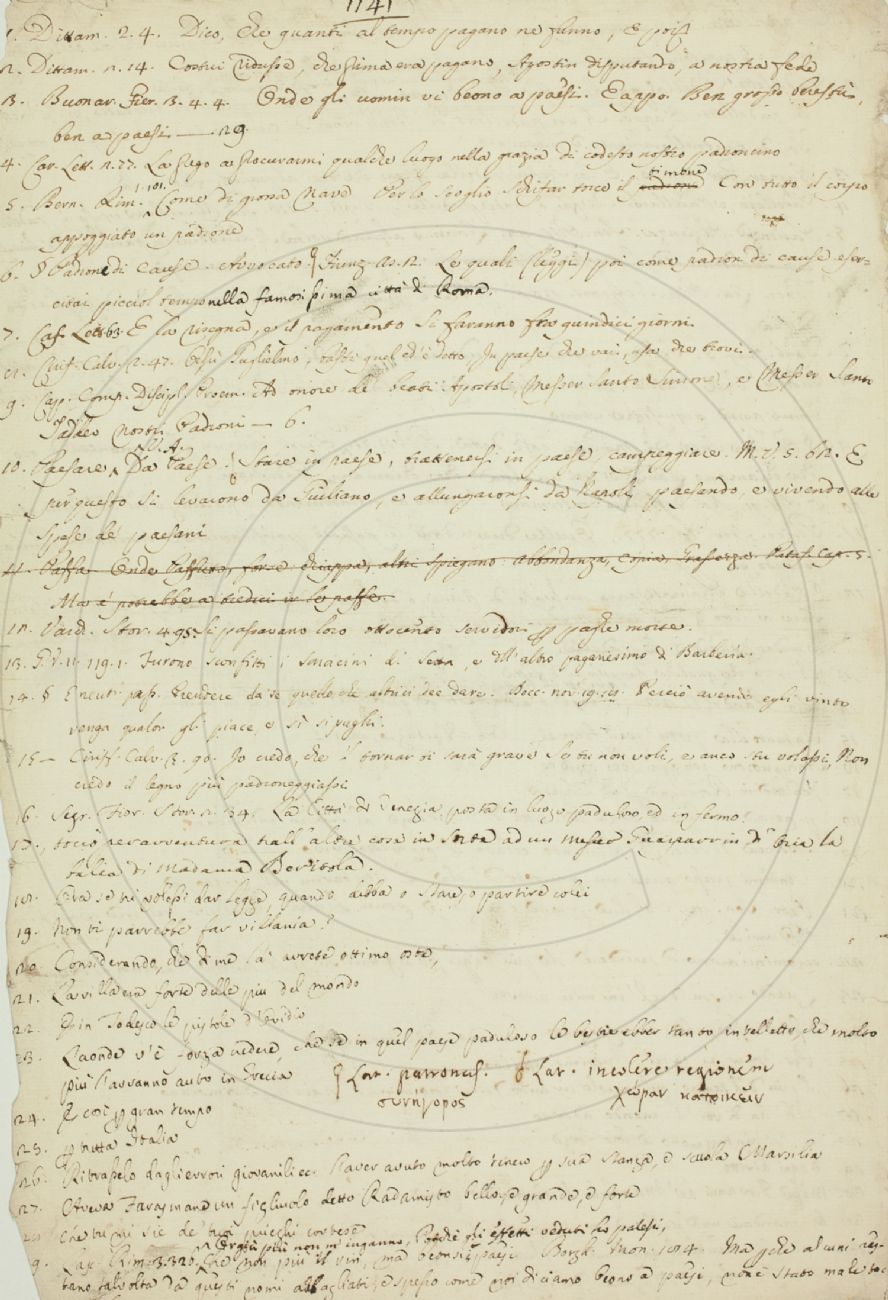 1141
1. Dittam. 2. 4. Dico, che quanti al tempo pagano ne funno, E poi
2. Dittam. 2. 14. Costui ridusse, che prima era pagano, Agostin disputando, a nostra fede
3. Buonar. Fier. 3. 4. 4. Onde gli uomin vi beono a paesi. E appo. Ben grosso
ben a paesi — 29.
4. Car. Lett. 2. 77. La prego a procurarmi qualche luogo nella grazia di codesto nostro padroncino
5. Bern. Rim. 1. 101. Come di grossa nave Per lo scoglio schifar torce il timone padrone Con tutto il corpo
appoggiato un padrone
6. § Padrone di Cause. Avvocato § Firenz. As. 12. Le quali (leggi) poi come padron di cause eser-
citai picciol tempo nella famosissima città di Roma.
7. Cas. Lett. 63. E la risegna, e il pagamento si faranno fra quindici giorni.
Ciriff. Calv. 2. 47. Guglielmo, quel ch'è detto, In paese che vai, usa che trovi.
9. Cap. Comp. Discipl. Proem. Ad onore de' beati Apostoli, Messer Santo Simone, e Messer Santo
Taddeo nostri Padroni — 6.
10. Paesare. V. A. Da Paese. Stare in paese, trattenersi in paese, campeggiare. M. V. 5. 62. E
per questo si levarono da Giuliano, e allungaronsi da Napoli paesando, e vivendo alle
spese de' paesani
11. Paffa. Onde Paffuto, forse altri spiegano: Abbondanza, Copia, Grassezza. Pataff. Cap. 5.
Ma a tredici le paffe.
12. Varch. Stor. 4. 95. Si passavano loro ottocento servidori per paghe morte.
13. G. V. 11. 119. 1. Furono sconfitti i saracini di Setta, e dell'altro paganesimo di Barberia.
14. § E neutr. pass. Prendere da se quello che altri ci dee dare. Bocc. nov. 19. Perciò avendo egli vinto
venga qualor gli piace, e sì si paghi.
15— Ciriff. Calv. 3. 90. Io credo, che 'l tornar vi sarà grave Se tu non voli, e anco s'tu volassi, Non
credo il legno più padroneggiassi
16. Segr. Fior. Stor. 2. 34. La Città di Venezia posta in luogo paduloso, ed infermo.
17. toccò peravventura trall'altre cose in sorte ad un messer Guasparrin d'Oria la
balia di Madama Beritola.
18. Ora se tu volessi dar legge, quando debba o stare, o partire colei
19. Non ti parrebbe far villania?
20. Considerando, che di me là avrete ottimo oste,
21. La villa era forte delle più del mondo
22. E in Todesco le pistole d'Ovidio
23. Laonde v'è forza credere, che se in quel paese paduloso le bestie ebber tanto intelletto che molto
più l'avranno auto in Grecia § Lat. patronus. § Lat. incolere regionem
συνήγορος χώραν κατοικεῖν
24. E così per gran tempo
25. per tutta Italia
26. Ritrasselo dagli errori giovanili ec. l'aver avuto molto tenero per sua stanza, e scuola Marsilia
27. Aveva Farasmane un figliuolo detto Radamisto bello, e grande, e forte
Che tu mi sie de' tuoi prieghi cortese
Ond'io più non m'inganno, Perchè gli effetti veduti ho palesi,
Rim. 3. 320. Che non più il vin, ma beonsi i paesi. Borgh. Mon. 184. Ma perchè alcuni res-
tano talvolta da questi nomi abbagliati, e spesso come noi diciamo beono a paesi, non è stato male